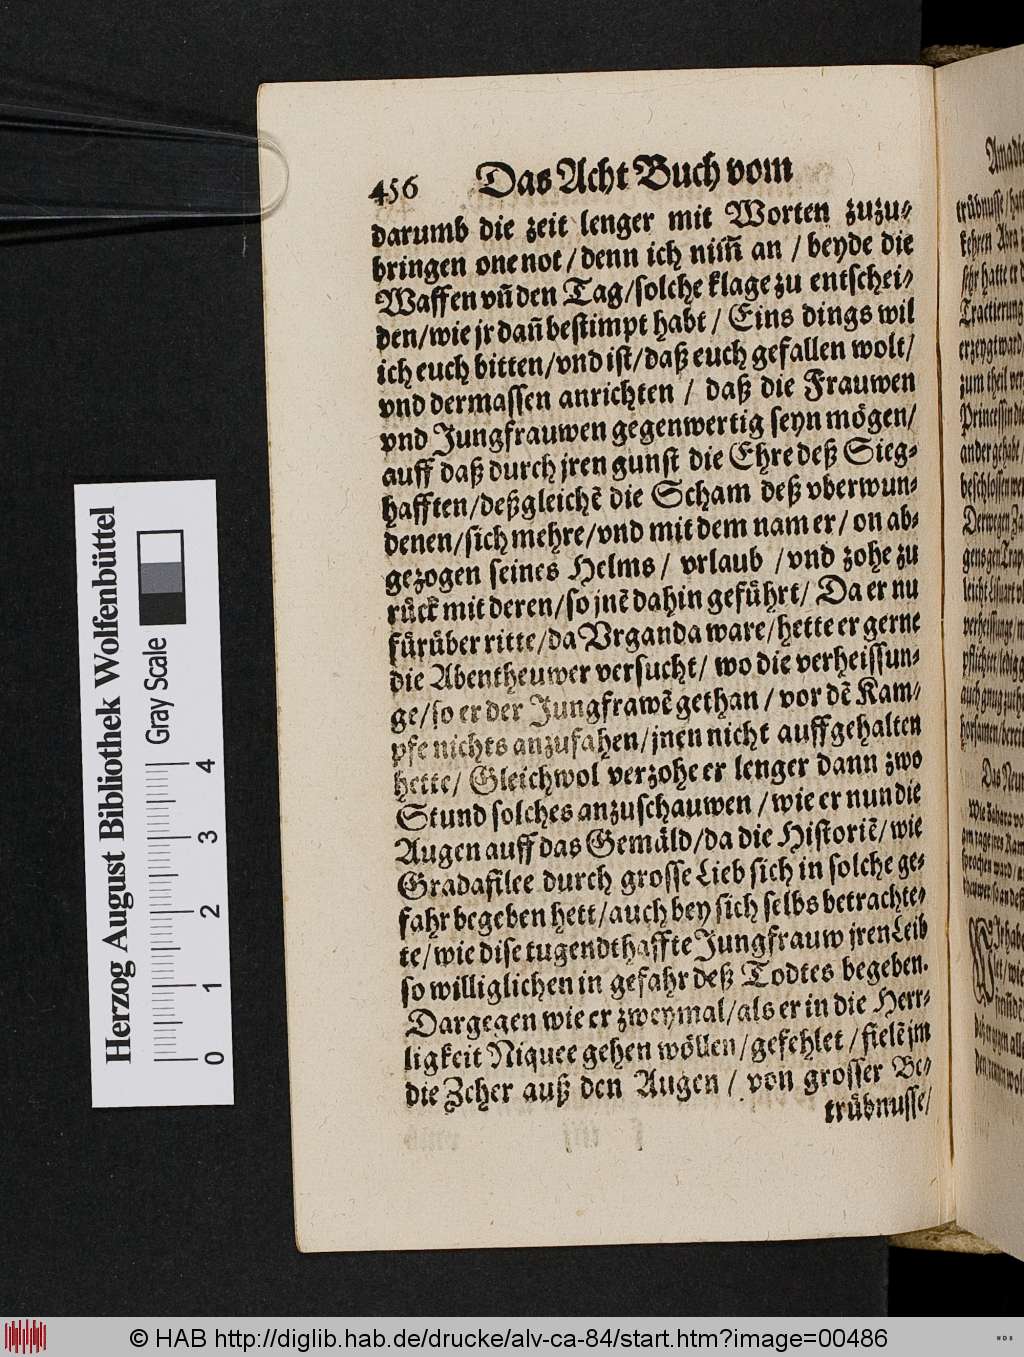 456 Das Acht Buch vom
darumb die zeit lenger mit Worten zuzu⸗
bringen one not / denn ich nim̃ an / beyde die
Waffen vñ den Tag / solche klage zu entschei⸗
den / wie jr dañ bestimpt habt / Eins dings wil
ich euch bitten / vnd ist / daß euch gefallen wolt /
vnd dermassen anrichten / daß die Frauwen
vnd Jungfrauwen gegenwertig seyn mögen /
auff daß durch jren gunst die Ehre deß Sieg⸗
hafften / deßgleichẽ die Scham deß vberwun⸗
denen / sich mehre / vnd mit dem nam er / on ab⸗
gezogen seines Helms / vrlaub / vnd zohe zu
rück mit deren / so jnẽ dahin geführt / Da er nu
fürüber ritte / da Vrganda ware / hette er gerne
die Abentheuwer versucht / wo die verheissun⸗
ge / so er der Jungfrawẽ gethan / vor dẽ Kam⸗
pfe nichts anzufahen / jnen nicht auffgehalten
hette / Gleichwol verzohe er lenger dann zwo
Stund solches anzuschauwen / wie er nun die
Augen auff das Gemäld / da die Historiẽ / wie
Gradafilee durch grosse Lieb sich in solche ge⸗
fahr begeben hett / auch bey sich selbs betrachte⸗
te / wie dise tugendthaffte Jungfrauw jren Leib
so williglichen in gefahr deß Todtes begeben.
Dargegen wie er zweymal / als er in die Herr⸗
ligkeit Niquee gehen wöllen / gefehlet / fielẽ jm
die Zeher auß den Augen / von grosser Be⸗
trübnusse /
trübnusse / hat
kehren
Tractierung
erzeygt ward /
zum theil ver
Princessin die
ander gehabt /
beschlossen wer
Derwegen
Das Neun
Herzog August Bibliothek Wolfenbüttel
Gray Scale
0 1 2 3 4
© HAB http://diglib.hab.de/drucke/alv-ca-84/start.htm?image=00486